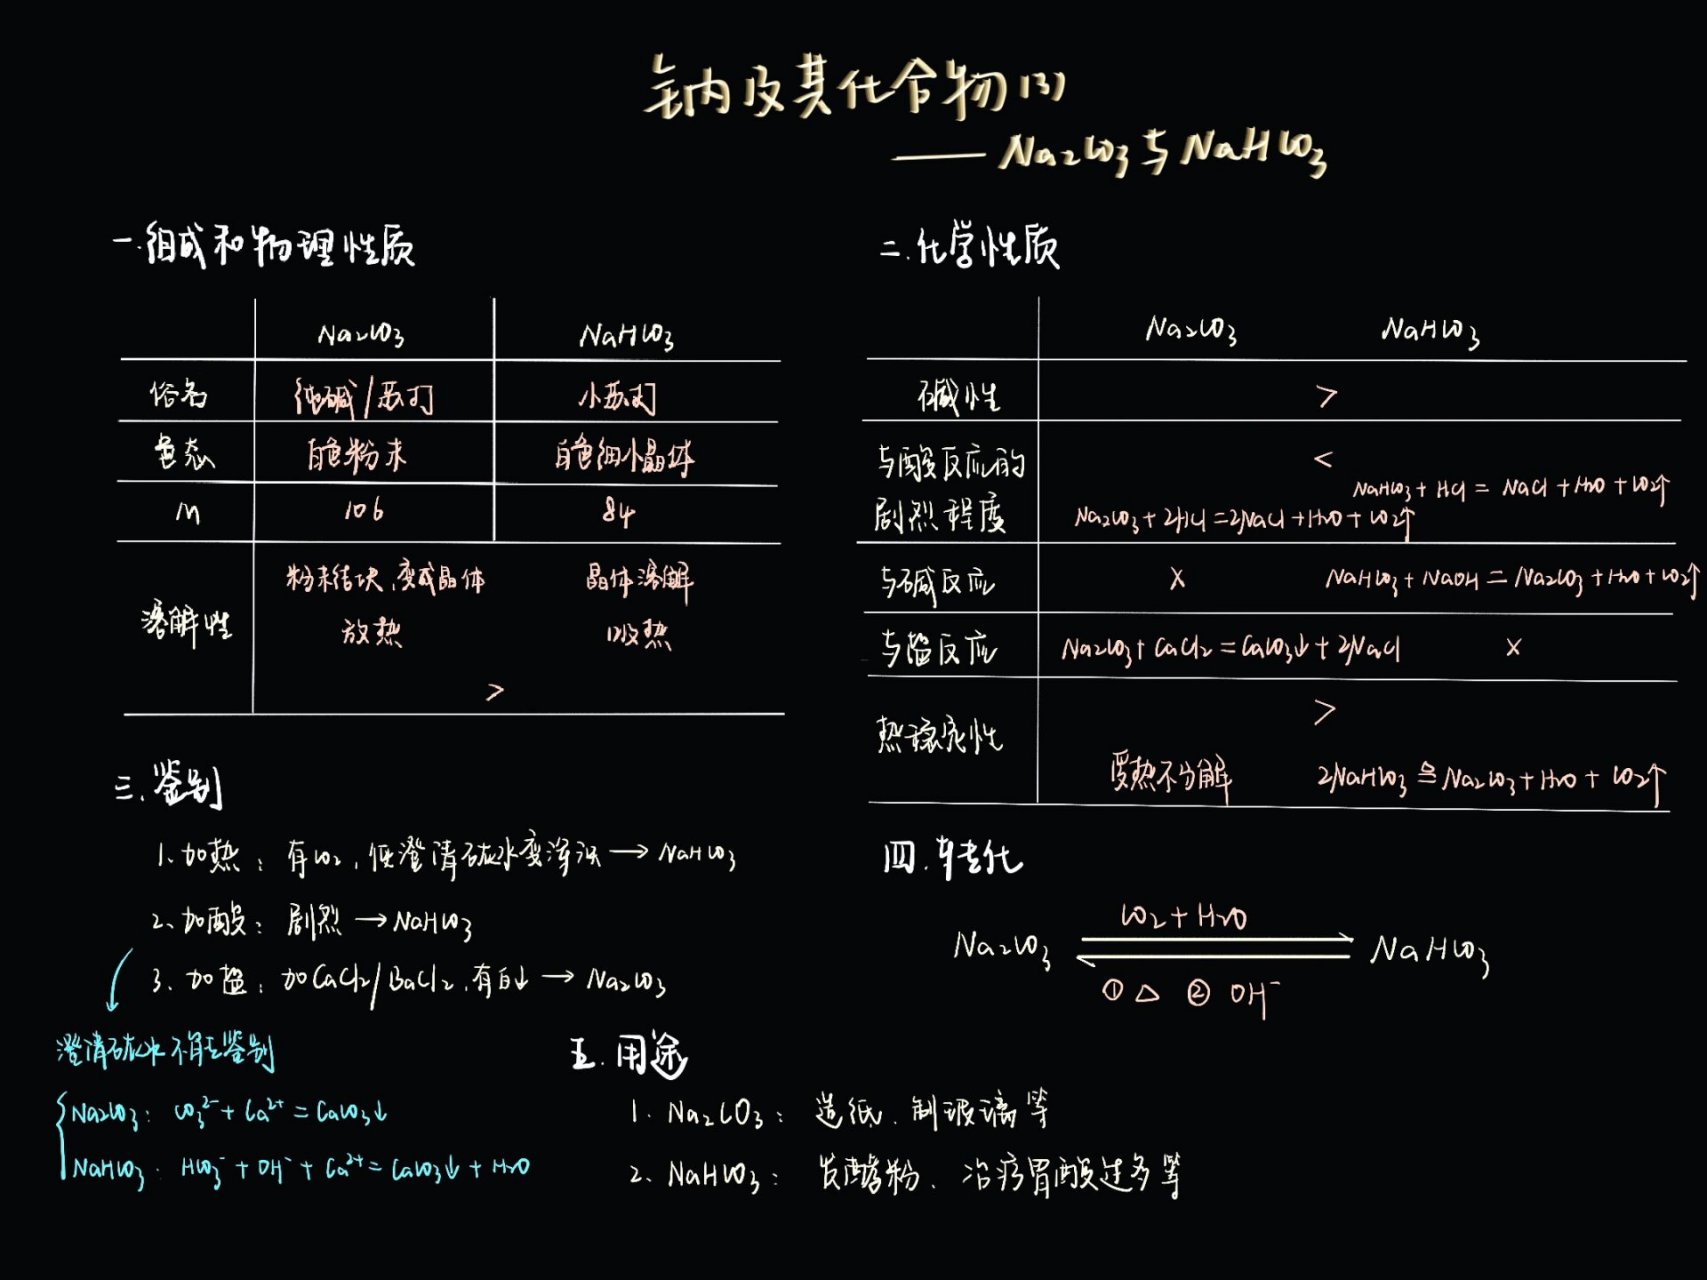 钠及其化合物(3)
—— Na2CO3与NaHCO3
一.组成和物理性质
Na2CO3 NaHCO3
俗名 纯碱/苏打 小苏打
色态 白色粉末 白色细小晶体
M 106 84
溶解性 粉末结块,变成晶体 晶体溶解
放热 吸热
>
二.化学性质
Na2CO3 NaHCO3
碱性 >
与酸反应的剧烈程度 <
NaHCO3+HCl=NaCl+H2O+CO2↑
Na2CO3+2HCl=2NaCl+H2O+CO2↑
与碱反应 × NaHCO3+NaOH=Na2CO3+H2O+CO2↑
与盐反应 Na2CO3+CaCl2=CaCO3↓+2NaCl ×
热稳定性 >
受热不分解 2NaHCO3≙Na2CO3+H2O+CO2↑
三.鉴别
1、加热:有CO2,使澄清石灰水变浑浊→NaHCO3
2、加酸:剧烈→NaHCO3
3、加盐:加CaCl2/BaCl2,有白↓→Na2CO3
澄清石灰水不能鉴别
Na2CO3:CO3²⁻+Ca²⁺=CaCO3↓
NaHCO3:HCO3⁻+OH⁻+Ca²⁺=CaCO3↓+H2O
四.转化
CO2+H2O
Na2CO3 ⇌ NaHCO3
①△ ②OH⁻
五.用途
1.Na2CO3:造纸、制玻璃等
2、NaHCO3:发酵粉、治疗胃酸过多等